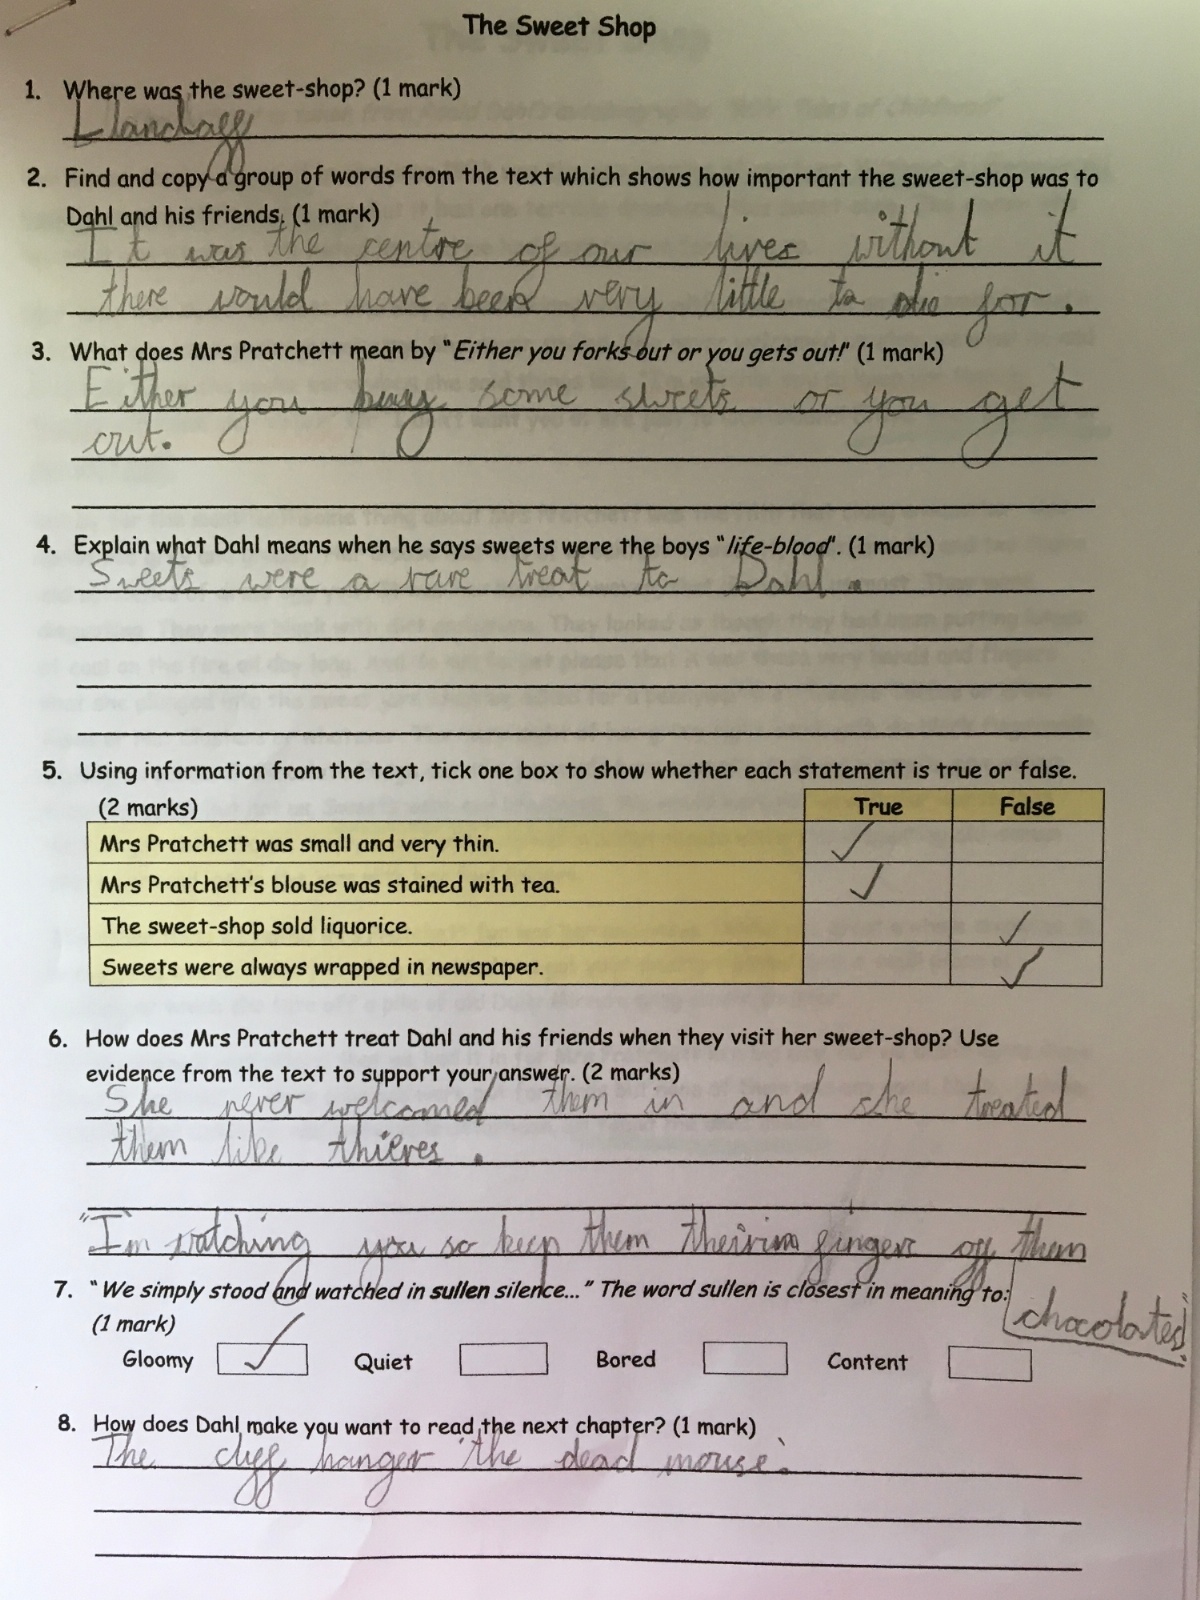 The Sweet Shop
1. Where was the sweet-shop? (1 mark)
Llandaff
2. Find and copy a group of words from the text which shows how important the sweet-shop was to
Dahl and his friends. (1 mark)
It was the centre of our lives without it
there would have been very little to die for.
3. What does Mrs Pratchett mean by "Either you forks out or you gets out!" (1 mark)
Either you buy some sweets or you get
out.
4. Explain what Dahl means when he says sweets were the boys "life-blood". (1 mark)
Sweets were a rare treat to Dahl.
5. Using information from the text, tick one box to show whether each statement is true or false.
(2 marks) True False
Mrs Pratchett was small and very thin. ✓
Mrs Pratchett's blouse was stained with tea. ✓
The sweet-shop sold liquorice. ✓
Sweets were always wrapped in newspaper. ✓
6. How does Mrs Pratchett treat Dahl and his friends when they visit her sweet-shop? Use
evidence from the text to support your answer. (2 marks)
She never welcomed them in and she treated
them like thieves.
"I'm watching you so keep them fingers off them
chocolates!"
7. "We simply stood and watched in sullen silence..." The word sullen is closest in meaning to:
(1 mark)
Gloomy ✓ Quiet Bored Content
8. How does Dahl make you want to read the next chapter? (1 mark)
The cliff hanger 'the dead mouse'.